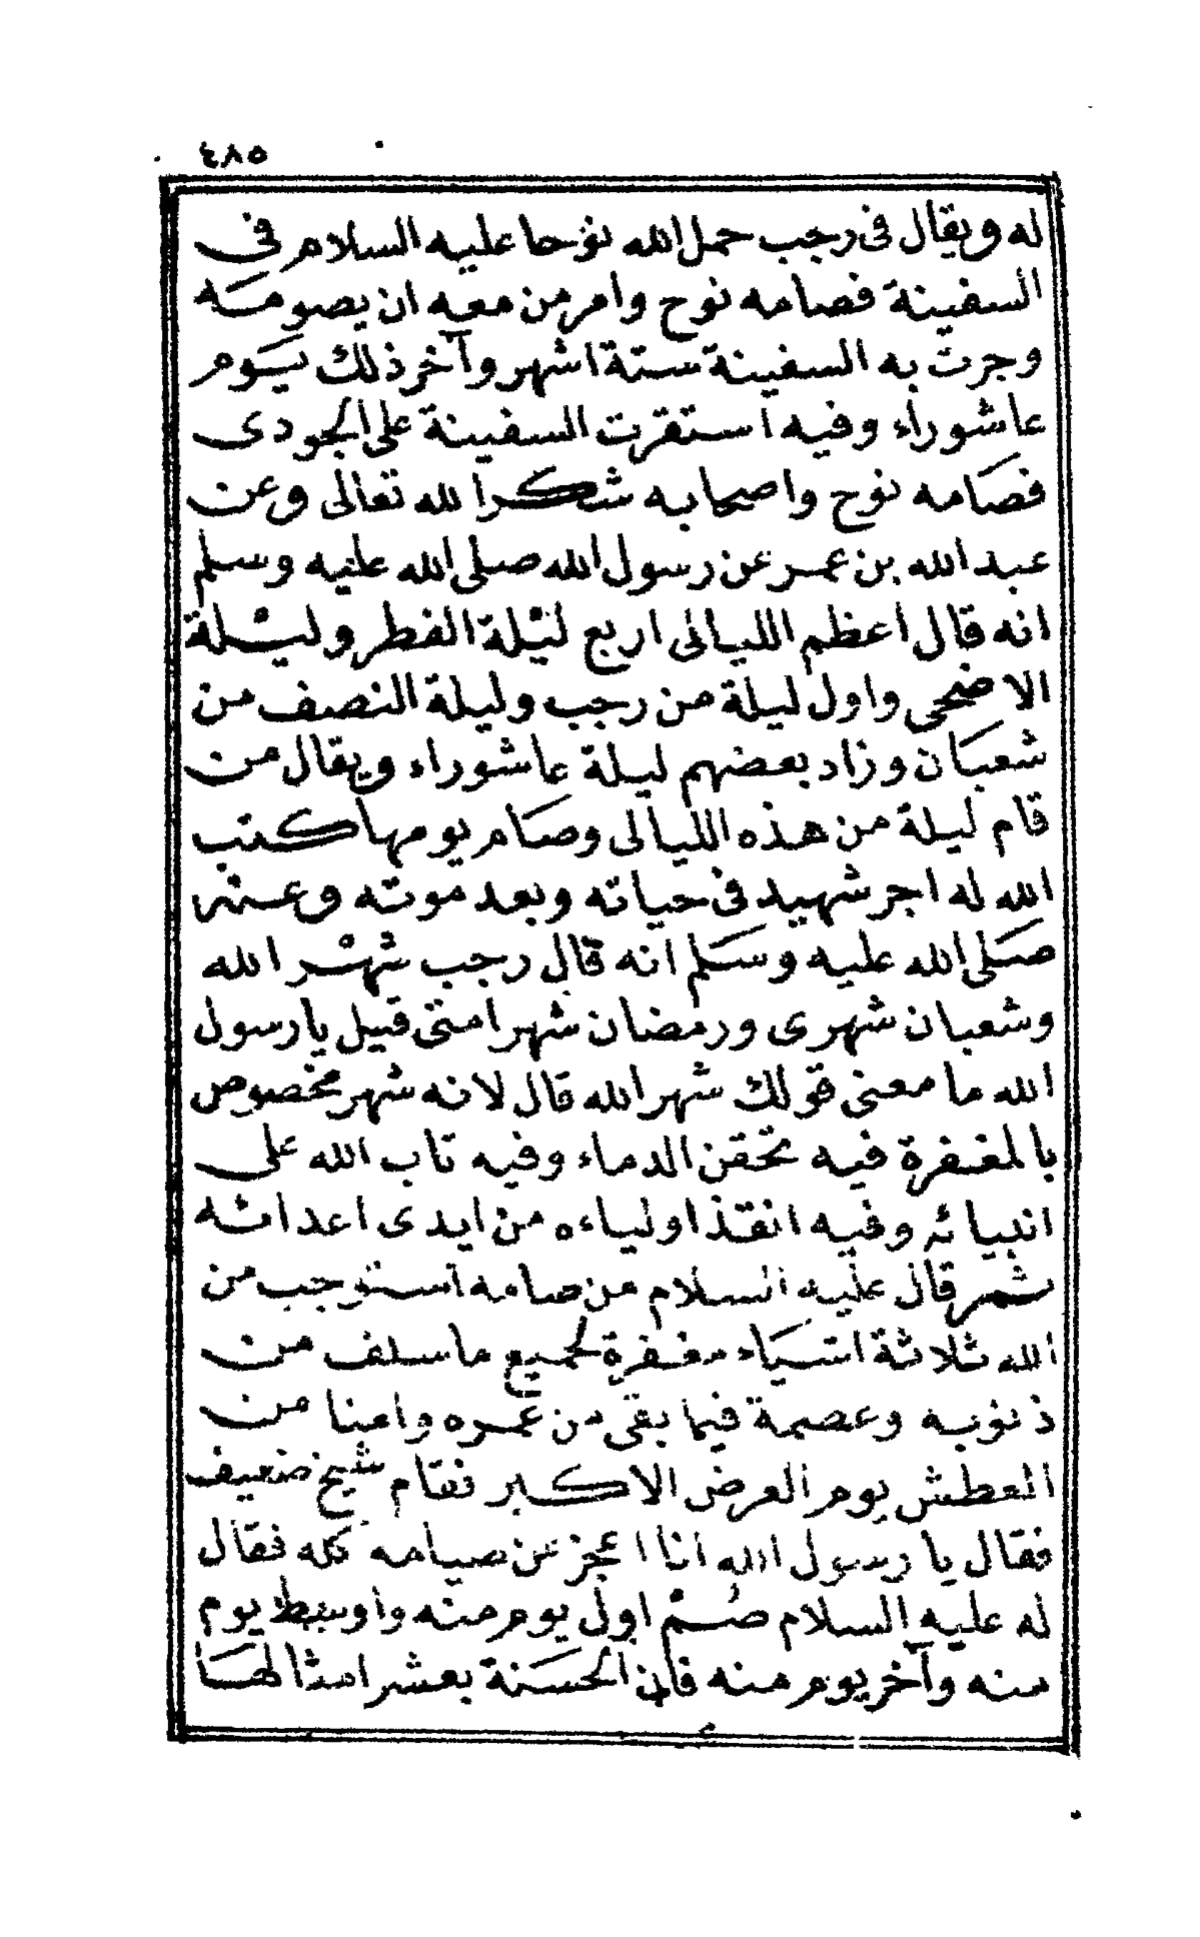 ٤٨٥
له ويقال فى رجب حمل الله نوحا عليه السلام فى
السفينة فصامه نوح وامر من معه ان يصومه
وجرت به السفينة ستة اشهر وآخر ذلك يوم
عاشوراء وفيه استقرت السفينة على الجودى
فصامه نوح واصحابه شكرا لله تعالى وعن
عبد الله بن عمر عن رسول الله صلى الله عليه وسلم
انه قال أعظم الليالى اربع ليْلة الفطر وليْلة
الاضحى واول ليلة من رجب وليلة النصف من
شعبان وزاد بعضهم ليلة عاشوراء ويقال من
قام ليلة من هذه الليالى وصام يومها كتب
الله له اجر شهيد فى حياته وبعد موته وعنه
صلى الله عليه وسلم انه قال رجب شهْر الله
وشعبان شهرى ورمضان شهر امتى قيل يا رسول
الله ما معنى قولك شهر الله قال لانه شهر مخصوص
بالمغفرة فيه تحقن الدماء وفيه تاب الله على
انبيائه وفيه انقذ اولياءه من ايدى اعدائه
ثم قال عليه السلام من صامه استوجب من
الله ثلاثة اشياء مغفرة لجميع ما سلف من
ذنوبه وعصمة فيما بقى من عمره وامنا من
العطش يوم العرض الاكبر فقام شيخ ضعيف
فقال يا رسول الله انا اعجز عن صيامه كله فقال
له عليه السلام صُمْ اول يوم منه واوسط يوم
منه وآخر يوم منه فان الحسنة بعشر امثالها